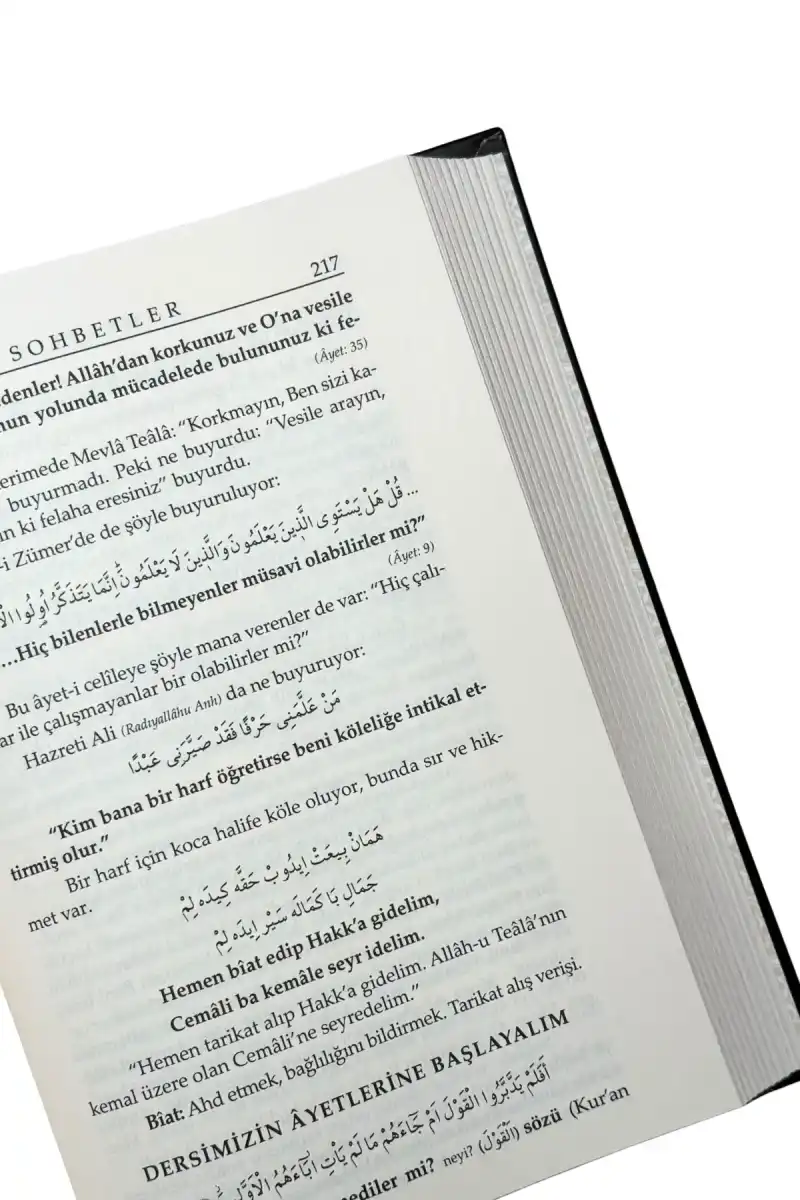 217
SOHBETLER
denler! Allâh'dan korkunuz ve O'na vesile
nun yolunda mücadelede bulununuz ki fe-
(Âyet: 35)
erimede Mevlâ Teâlâ: "Korkmayın, Ben sizi ka-
buyurmadı. Peki ne buyurdu: "Vesile arayın,
n ki felaha eresiniz" buyurdu.
-i Zümer'de de şöyle buyuruluyor:
... قُلْ هَلْ يَسْتَوِى الَّذِينَ يَعْلَمُونَ وَالَّذِينَ لَا يَعْلَمُونَ إِنَّمَا يَتَذَكَّرُ أُولُوا
...Hiç bilenlerle bilmeyenler müsavi olabilirler mi?"
(Âyet: 9)
Bu âyet-i celîleye şöyle mana verenler de var: "Hiç çalı-
ar ile çalışmayanlar bir olabilirler mi?"
Hazreti Ali (Radıyallâhu Anh) da ne buyuruyor:
مَنْ عَلَّمَنِى حَرْفًا فَقَدْ صَيَّرَنِى عَبْدًا
"Kim bana bir harf öğretirse beni köleliğe intikal et-
tirmiş olur."
Bir harf için koca halife köle oluyor, bunda sır ve hik-
met var.
هَمَانْ بِيعَتْ اِيدُوبْ حَقَّه كِيدَه لِمْ
جَمَالِ بَا كَمَالَه سَيْر اِيدَه لِمْ
Hemen bîat edip Hakk'a gidelim,
Cemâli ba kemâle seyr idelim.
"Hemen tarikat alıp Hakk'a gidelim. Allâh-u Teâlâ'nın
kemal üzere olan Cemâli'ne seyredelim."
Bîat: Ahd etmek, bağlılığını bildirmek. Tarikat alış verişi.
DERSİMİZİN ÂYETLERİNE BAŞLAYALIM
أَفَلَمْ يَدَّبَّرُوا الْقَوْلَ أَمْ جَاءَهُمْ مَا لَمْ يَأْتِ آبَاءَهُمُ الْأَوَّلِ
ediler mi? neyi? (الْقَوْلَ) sözü (Kur'an